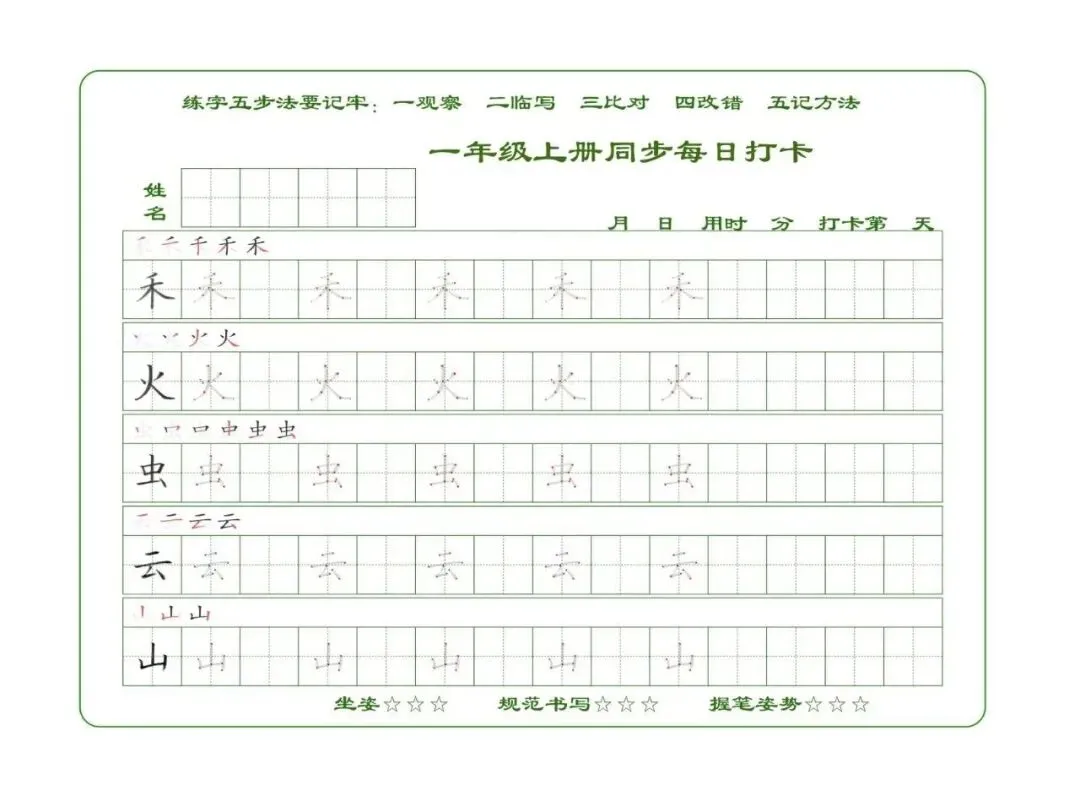 练字五步法要记牢：一观察 二临写 三比对 四改错 五记方法
一年级上册同步每日打卡
姓名
月 日 用时 分 打卡第 天
千 禾 禾
禾 禾 禾 禾 禾 禾
火 火
火 火 火 火 火 火
虫 口 口 中 虫 虫
虫 虫 虫 虫 虫 虫
二 云 云
云 云 云 云 云 云
山 山
山 山 山 山 山 山
坐姿☆☆☆ 规范书写☆☆☆ 握笔姿势☆☆☆